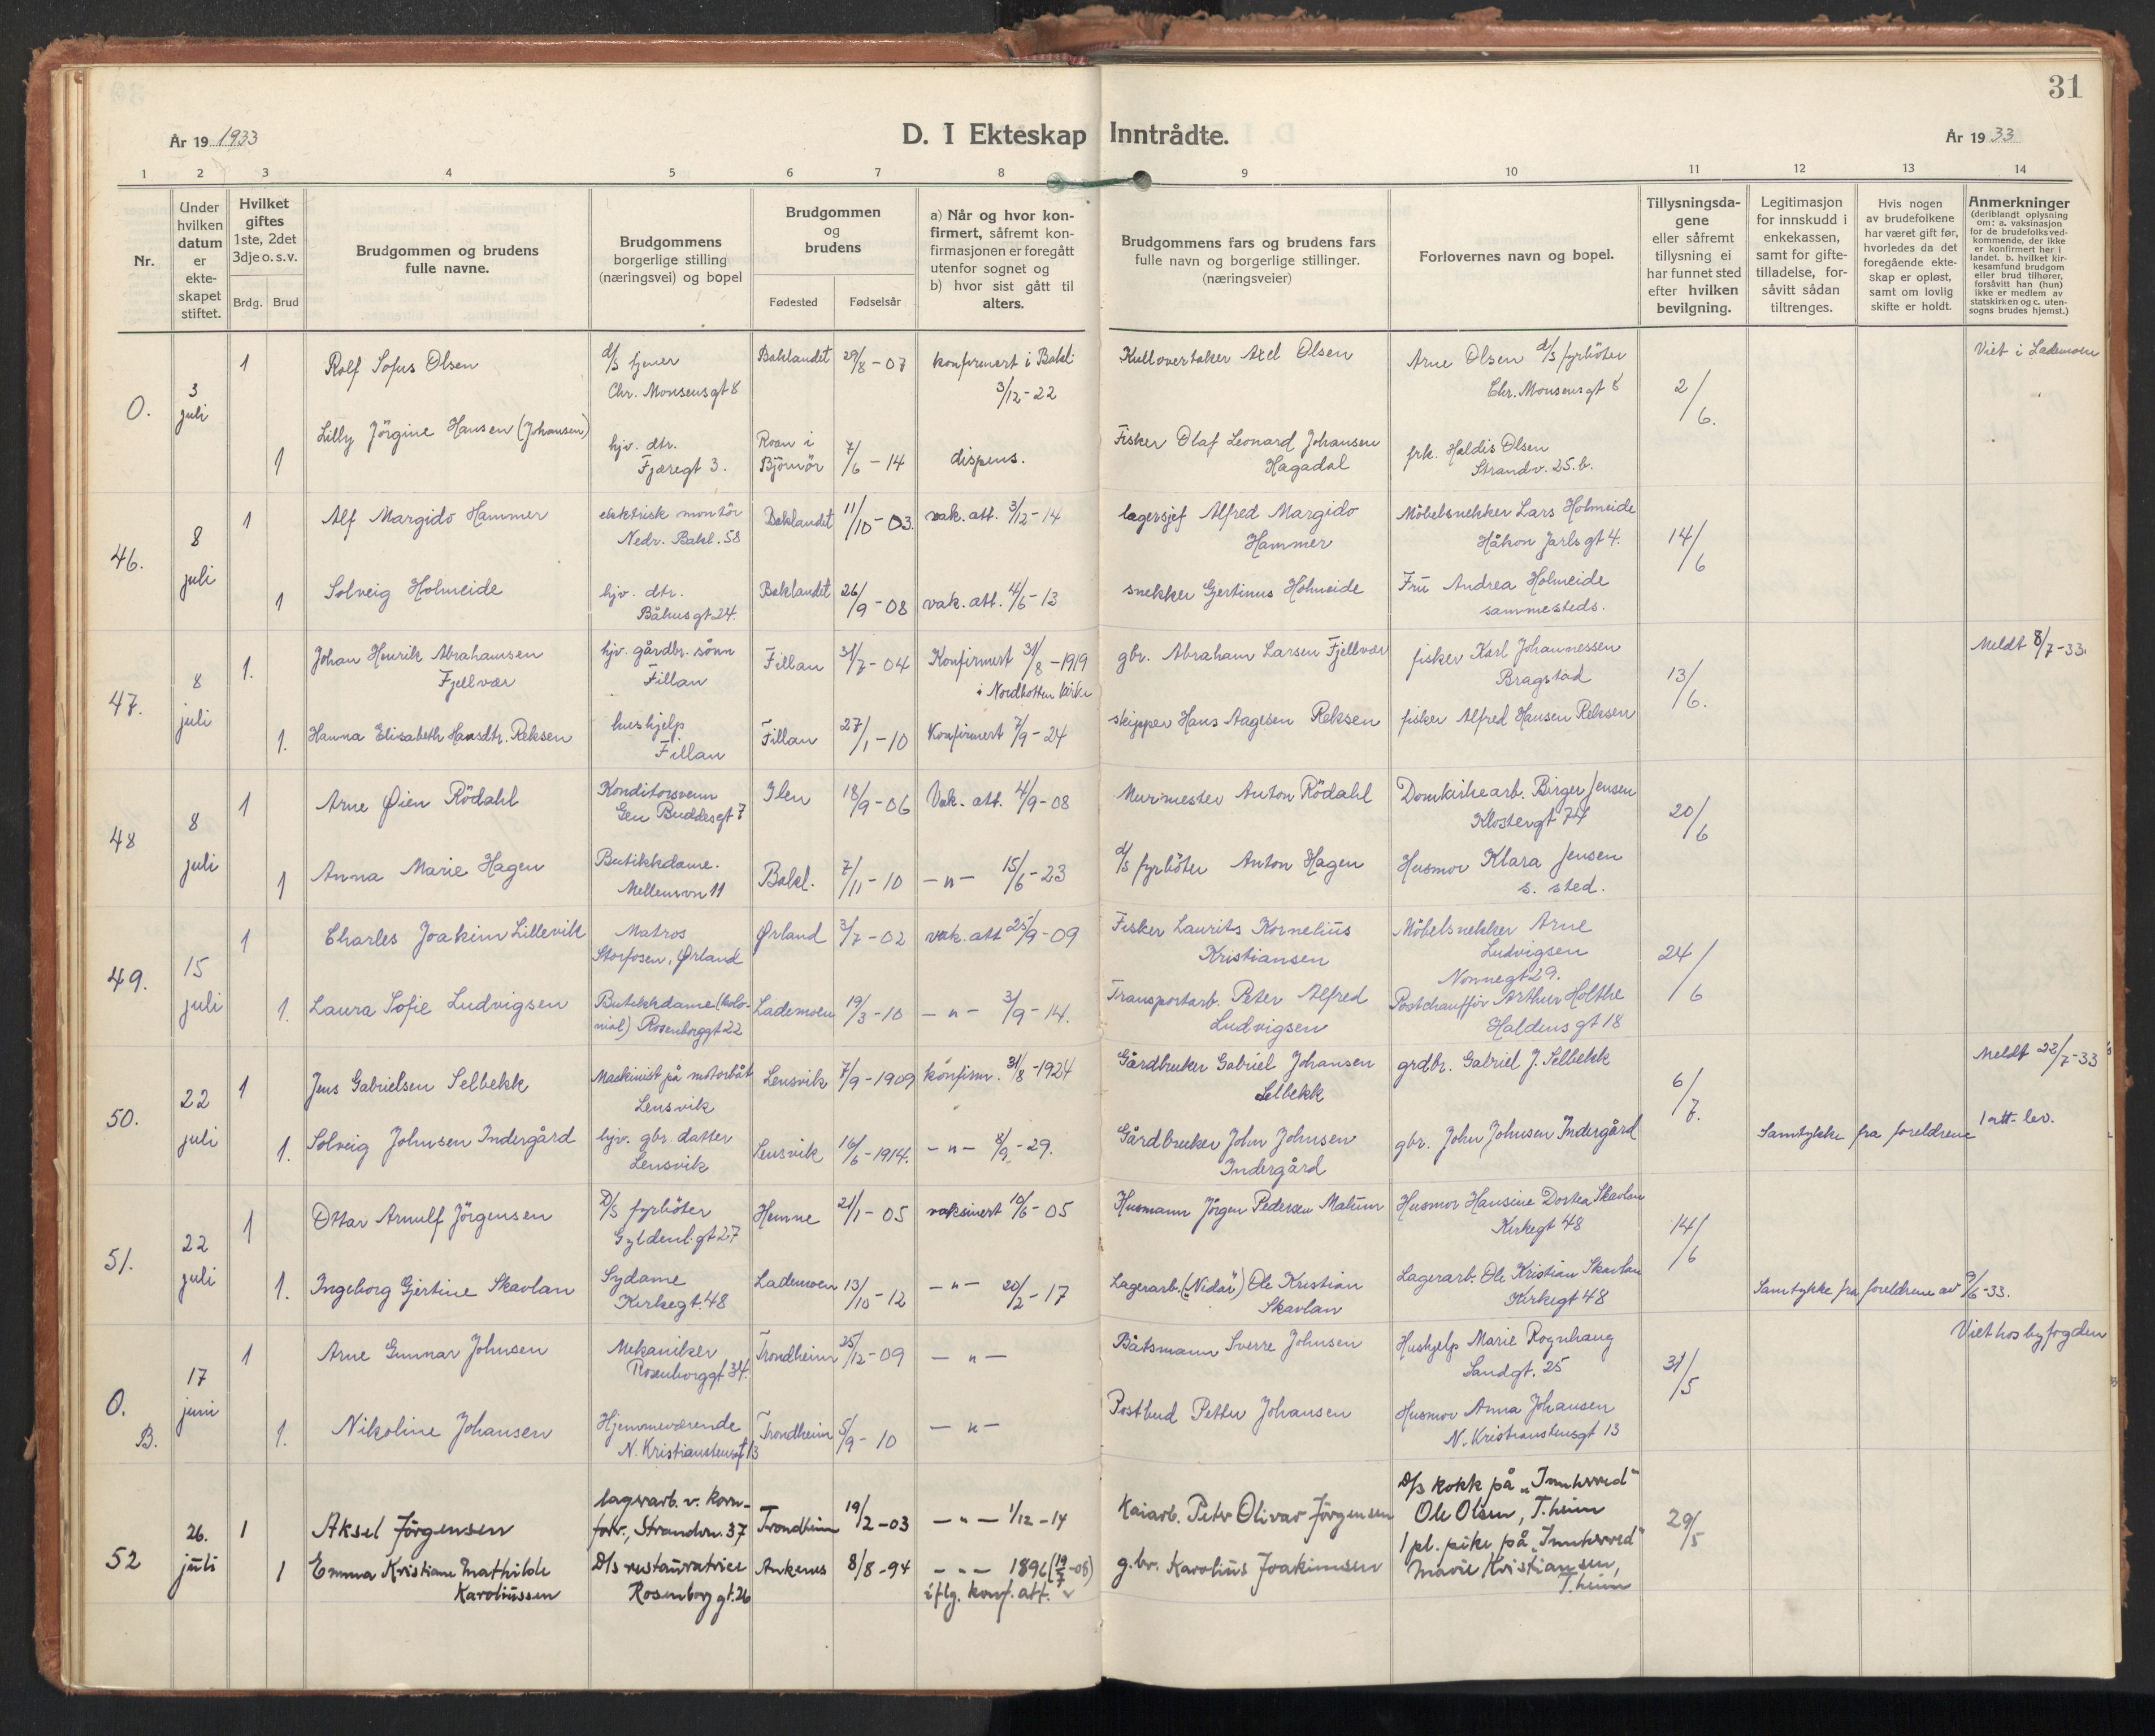 31
År 19 1933
D. I Ekteskap Inntrådte.
År 19 33
1 2 3 4 5 6 7 8 9 10 11 12 13 14
Nr.
Under
hvilken
datum
er
ekte-
skapet
stiftet.
Hvilket
giftes
1ste, 2det
3dje o. s. v.
Brdg. Brud
Brudgommen og brudens
fulle navne.
Brudgommens
borgerlige stilling
(næringsvei) og bopel
Brudgommen
og
brudens
Fødested Fødselsår
a) Når og hvor kon-
firmert, såfremt kon-
firmasjonen er foregått
utenfor sognet og
b) hvor sist gått til
alters.
Brudgommens fars og brudens fars
fulle navn og borgerlige stillinger.
(næringsveier)
Forlovernes navn og bopel.
Tillysningsda-
gene
eller såfremt
tillysning ei
har funnet sted
efter hvilken
bevilgning.
Legitimasjon
for innskudd i
enkekassen,
samt for gifte-
tilladelse, for-
såvitt sådan
tiltrenges.
Hvis nogen
av brudefolkene
har været gift før,
hvorledes da det
foregående ekte-
skap er opløst,
samt om lovlig
skifte er holdt.
Anmerkninger
(deriblandt oplysning
om: a. vaksinasjon
for de brudefolks ved-
kommende, der ikke
er konfirmert her i
landet. b. hvilket kir-
kesamfund brudgom
eller brud tilhører,
forsåvitt han (hun)
ikke er medlem av
statskirken og c. uten-
sogns brudes hjemst.)
O.
3
juli
1 Rolf Sofus Olsen
d/s fyrier
Chr. Monsensgt 8
Baklandet 29/8 - 07
konfirmert i Bakl.
3/12 - 22
Kullovertaker Axel Olsen
Arne Olsen d/s fyrböter
Chr. Monsensgt 8
2/6.
Viet i Lademoen
1 Lilly Jörgine Hansen (Johansen)
hjv. dtr.
Fjæregt 3.
Roan i
Björnör 7/6 - 14
dispens.
Fisker Olaf Leonard Johansen
Hagadal
frk. Haldis Olsen
Strandv. 25.b.
46.
8
juli
1 Alf Margido Hammer
elektrisk montör
Nedr. Bakl. 58
Baklandet 11/10 - 03.
vak. att. 3/12 - 14
lagersjef Alfred Margido
Hammer
Möbelsnekker Lars Holmeide
Håkon Jarls gt 4.
14/6
1 Solveig Holmeide
hjv. dtr.
Båhusgt 24.
Baklandet 26/9 - 08
vak. att. 4/6 - 13
snekker Gjertinus Holmeide
Fru Andrea Holmeide
sammesteds.
47.
8
juli
1. Johan Henrik Abrahamsen
Fjellvær
hjv. gårdbr. sönn
Fillan
Fillan 31/7 - 04
Konfirmert 31/8 - 1919
i Nordbotten kirke
gbr. Abraham Larsen Fjellvær
fisker Karl Johannessen
Bragstad
13/6.
Meldt 8/7-33.
1. Hanna Elisabeth Hansdtr. Reksen
hushjelp
Fillan
Fillan 27/1 - 10
Konfirmert 7/9 - 24
skipper Hans Aagesen Reksen
fisker Alfred Hansen Reksen
48
8
juli
1 Arne Øien Rödahl
Konditorsvenn
Gen Buddesgt 7
Ilen 18/9 - 06
Vak. att. 4/9 - 08
Murmester Anton Rödahl
Domkirkearb. Birger Jensen
Klostergt 74
20/6
1 Anna Marie Hagen
Butikkdame.
Mellemvn 11
Bakl. 7/11 - 10
- " - 15/6 - 23
d/s fyrböter Anton Hagen
Husmor Klara Jensen
s. sted.
49.
15
juli
1 Charles Joakim Lillevik
Matros
Storfosen, Ørland
Ørland 3/7 - 02
vak. att 25/9 - 09
Fisker Laurits Kornelius
Kristiansen
Möbelsnekker Arne
Ludvigsen
Nonnegt 29.
24/6
1. Laura Sofie Ludvigsen
Butikkdame (kolo-
nial) Rosenborggt 22
Lademoen 19/3 - 10
- " - 3/9 - 14.
Transportarb. Peter Alfred
Ludvigsen
Postchaufför Arthur Holthe
Haldens gt 18
50.
22
juli
1 Jens Gabrielsen Selbekk
Maskinist på motorbåt
Lensvik
Lensvik 7/9 - 1909
konfirm. 31/8 - 1924
Gårdbruker Gabriel Johansen
Selbekk
grdbr. Gabriel J. Selbekk
6/7.
Meldt 22/7-33
1. Solveig Johnsen Indergård
hjv. gbr. datter
Lensvik
Lensvik 16/6 - 1914.
- " - 8/9 - 29.
Gårdbruker John Johnsen
Indergård
gbr. John Johnsen Indergård
Samtykke fra foreldrene
1 att. lev.
51.
22
juli
1 Ottar Arnulf Jörgensen
D/S fyrböter
Gyldenl. gt 27
Hemne 21/1 - 05
vaksinert 10/6 - 05
Husmann Jörgen Pedersen Malum
Husmor Hansine Dortea Skavlan
Kirkegt 48
14/6
1. Ingeborg Gjertine Skavlan
Sydame
Kirkegt. 48
Lademoen 13/10 - 12
- " - 20/2 - 17
Lagerarb. ("Nidar") Ole Kristian
Skavlan
Lagerarb. Ole Kristian Skavlan
Kirkegt 48
Samtykke fra foreldrene av 9/6-33.
O.
B.
17
juni
1 Arne Gunnar Johnsen
Mekaniker
Rosenborggt 34.
Trondheim 25/12 - 09
- " -
Båtsmann Sverre Johnsen
Hushjelp Marie Rognhaug
Sandgt. 25
31/5
Viet hos byfogden
1. Nikoline Johansen
Hjemmeværende
N. Kristianstensgt 13
Trondheim 5/9 - 10
- " -
Postbud Petter Johansen
Husmor Anna Johansen
N. Kristianstensgt 13
52
26.
juli
1 Aksel Jörgensen
lagerarb. v. korn-
forr., Strandvn. 37
Trondheim 19/2 - 03
- " - 1/12 - 14
Kaiarb. Peter Olivar Jörgensen
D/s kokk på "Innherred"
Ole Olsen, T.heim
29/5
1 Emma Kristiane Mathilde
Karoliussen
D/s restauratrice
Rosenborg gt. 26
Ankenes 8/8 - 94
- " - 1896 (19/7 - 08)
iflg. konf. att.
g.br. Karolius Joakimsen
1 pl. pike på "Innherred"
Marie Kristiansen,
T.heim